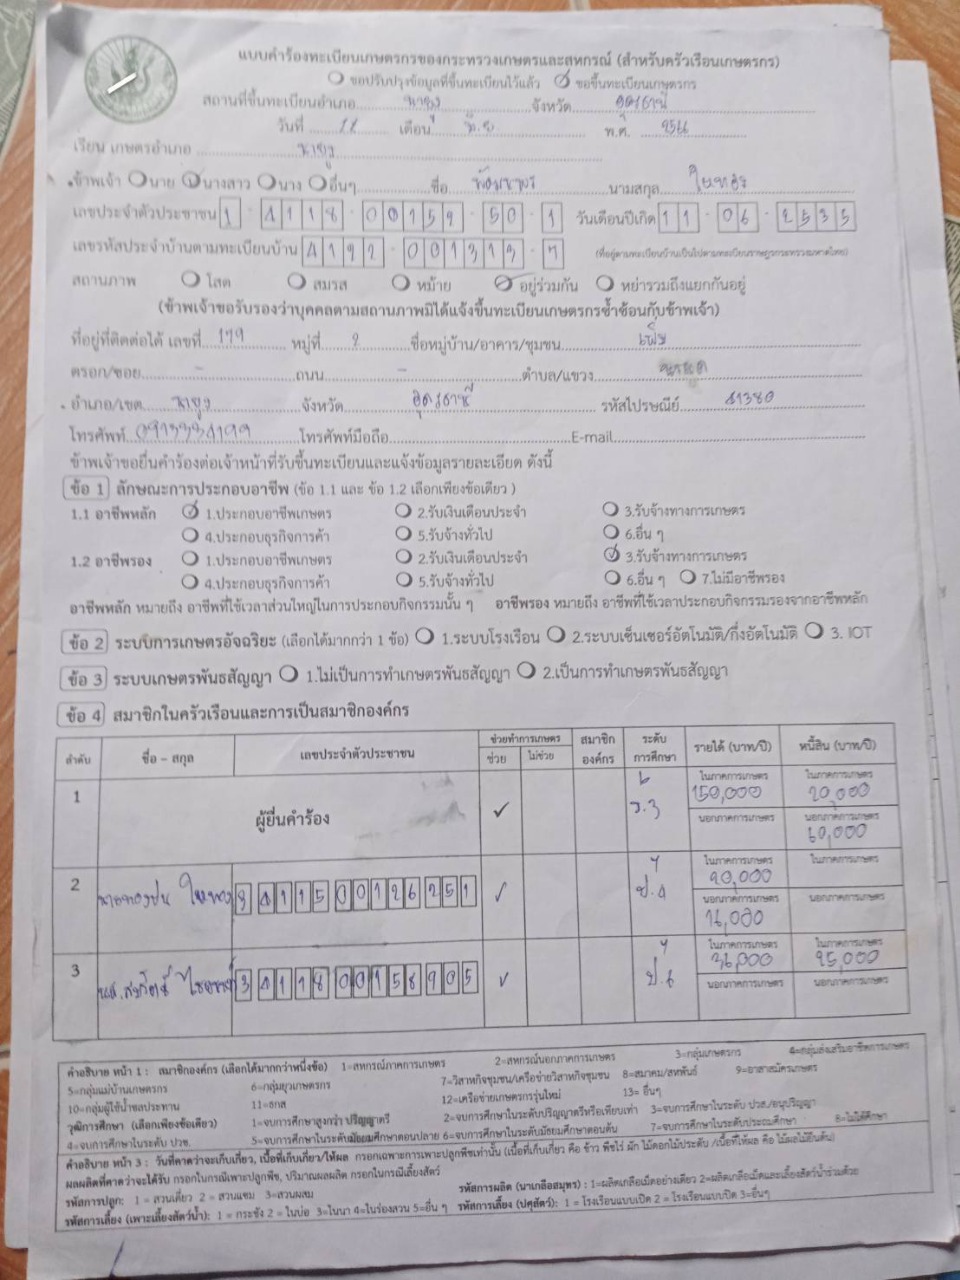 แบบคำร้องทะเบียนเกษตรกรของกระทรวงเกษตรและสหกรณ์ (สำหรับครัวเรือนเกษตรกร)
ขอปรับปรุงข้อมูลที่ขึ้นทะเบียนไว้แล้ว ขอขึ้นทะเบียนเกษตรกร
สถานที่ขึ้นทะเบียนอำเภอ นายูง จังหวัด อุดรธานี
วันที่ เดือน พ.ศ.
เรียน เกษตรอำเภอ นายูง
ข้าพเจ้า นาย นางสาว นาง อื่นๆ ชื่อ นามสกุล
เลขประจำตัวประชาชน 1 4118 00159 50 1 วันเดือนปีเกิด 11 06 2535
เลขรหัสประจำบ้านตามทะเบียนบ้าน 4192 001313 7 (ที่อยู่ตามทะเบียนบ้านเป็นไปตามทะเบียนราษฎรกระทรวงมหาดไทย)
สถานภาพ โสด สมรส หม้าย อยู่ร่วมกัน หย่ารวมถึงแยกกันอยู่
(ข้าพเจ้าขอรับรองว่าบุคคลตามสถานภาพมิได้แจ้งขึ้นทะเบียนเกษตรกรซ้ำซ้อนกับข้าพเจ้า)
ที่อยู่ที่ติดต่อได้ เลขที่ 179 หมู่ที่ 2 ชื่อหมู่บ้าน/อาคาร/ชุมชน เพิ่ม
ตรอก/ซอย - ถนน - ตำบล/แขวง
อำเภอ/เขต นายูง จังหวัด อุดรธานี รหัสไปรษณีย์ 41380
โทรศัพท์ 0913334199 โทรศัพท์มือถือ E-mail
ข้าพเจ้าขอยื่นคำร้องต่อเจ้าหน้าที่รับขึ้นทะเบียนและแจ้งข้อมูลรายละเอียด ดังนี้
ข้อ 1 ลักษณะการประกอบอาชีพ (ข้อ 1.1 และ ข้อ 1.2 เลือกเพียงข้อเดียว )
1.1 อาชีพหลัก 1.ประกอบอาชีพเกษตร 2.รับเงินเดือนประจำ 3.รับจ้างทางการเกษตร
4.ประกอบธุรกิจการค้า 5.รับจ้างทั่วไป 6.อื่น ๆ
1.2 อาชีพรอง 1.ประกอบอาชีพเกษตร 2.รับเงินเดือนประจำ 3.รับจ้างทางการเกษตร
4.ประกอบธุรกิจการค้า 5.รับจ้างทั่วไป 6.อื่น ๆ 7.ไม่มีอาชีพรอง
อาชีพหลัก หมายถึง อาชีพที่ใช้เวลาส่วนใหญ่ในการประกอบกิจกรรมนั้น ๆ อาชีพรอง หมายถึง อาชีพที่ใช้เวลาประกอบกิจกรรมรองจากอาชีพหลัก
ข้อ 2 ระบบการเกษตรอัจฉริยะ (เลือกได้มากกว่า 1 ข้อ) 1.ระบบโรงเรือน 2.ระบบเซ็นเซอร์อัตโนมัติ/กึ่งอัตโนมัติ 3. IOT
ข้อ 3 ระบบเกษตรพันธสัญญา 1.ไม่เป็นการทำเกษตรพันธสัญญา 2.เป็นการทำเกษตรพันธสัญญา
ข้อ 4 สมาชิกในครัวเรือนและการเป็นสมาชิกองค์กร
ลำดับ ชื่อ - สกุล เลขประจำตัวประชาชน ช่วยทำการเกษตร ช่วย ไม่ช่วย สมาชิกองค์กร ระดับการศึกษา รายได้ (บาท/ปี) หนี้สิน (บาท/ปี)
1 ผู้ยื่นคำร้อง ✓ 6 ในภาคการเกษตร 150,000 ในภาคการเกษตร 20,000
นอกภาคการเกษตร นอกภาคการเกษตร 60,000
2 3 4115 00126 25 1 ✓ 7 ป.4 ในภาคการเกษตร 90,000 ในภาคการเกษตร
นอกภาคการเกษตร 16,000 นอกภาคการเกษตร
3 3 4118 00158 90 5 ✓ 7 ป.6 ในภาคการเกษตร 36,000 ในภาคการเกษตร 95,000
นอกภาคการเกษตร นอกภาคการเกษตร
คำอธิบาย หน้า 1 : สมาชิกองค์กร (เลือกได้มากกว่าหนึ่งข้อ) 1=สหกรณ์ภาคการเกษตร 2=สหกรณ์นอกภาคการเกษตร 3=กลุ่มเกษตรกร 4=กลุ่มส่งเสริมอาชีพการเกษตร
5=กลุ่มแม่บ้านเกษตรกร 6=กลุ่มยุวเกษตรกร 7=วิสาหกิจชุมชน/เครือข่ายวิสาหกิจชุมชน 8=สมาคม/สหพันธ์ 9=อาสาสมัครเกษตร
10=กลุ่มผู้ใช้น้ำชลประทาน 11=ธกส 12=เครือข่ายเกษตรกรรุ่นใหม่ 13= อื่นๆ
วุฒิการศึกษา (เลือกเพียงข้อเดียว) 1=จบการศึกษาสูงกว่า ปริญญาตรี 2=จบการศึกษาในระดับปริญญาตรีหรือเทียบเท่า 3=จบการศึกษาในระดับ ปวส./อนุปริญญา
4=จบการศึกษาในระดับ ปวช. 5=จบการศึกษาในระดับมัธยมศึกษาตอนปลาย 6=จบการศึกษาในระดับมัธยมศึกษาตอนต้น 7=จบการศึกษาในระดับประถมศึกษา 8=ไม่ได้ศึกษา
คำอธิบาย หน้า 3 : วันที่คาดว่าจะเก็บเกี่ยว, เนื้อที่เก็บเกี่ยว/ให้ผล กรอกเฉพาะการเพาะปลูกพืชเท่านั้น (เนื้อที่เก็บเกี่ยว คือ ข้าว พืชไร่ ผัก ไม้ดอกไม้ประดับ /เนื้อที่ให้ผล คือ ไม้ผลไม้ยืนต้น)
ผลผลิตที่คาดว่าจะได้รับ กรอกในกรณีเพาะปลูกพืช, ปริมาณผลผลิต กรอกในกรณีเลี้ยงสัตว์ รหัสการผลิต (นาเกลือสมุทร) : 1=ผลิตเกลือเม็ดอย่างเดียว 2=ผลิตเกลือเม็ดและเลี้ยงสัตว์น้ำร่วมด้วย
รหัสการปลูก: 1 = สวนเดี่ยว 2 = สวนแซม 3=สวนผสม
รหัสการเลี้ยง (เพาะเลี้ยงสัตว์น้ำ): 1 = กระชัง 2 = ในบ่อ 3=ในนา 4=ในร่องสวน 5=อื่น ๆ รหัสการเลี้ยง (ปศุสัตว์): 1 = โรงเรือนแบบเปิด 2 = โรงเรือนแบบปิด 3=อื่นๆ